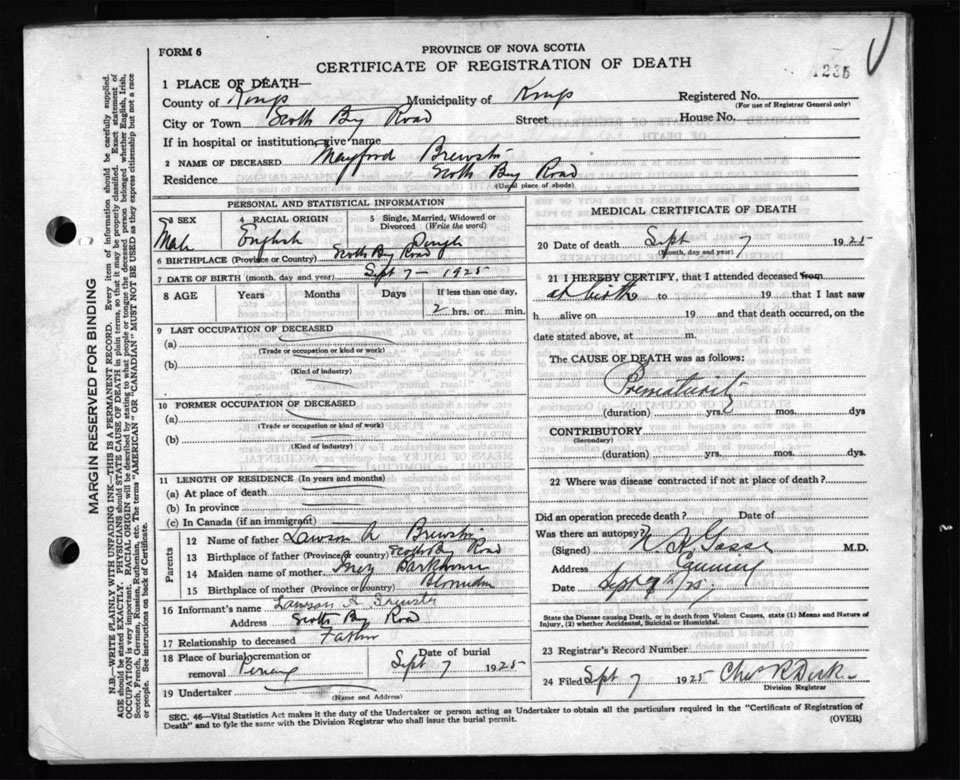 FORM 6
PROVINCE OF NOVA SCOTIA
CERTIFICATE OF REGISTRATION OF DEATH
1235
1 PLACE OF DEATH—
County of Kings Municipality of Kings Registered No.
(For use of Registrar General only)
City or Town Scotts Bay Road Street House No.
If in hospital or institution give name
2 NAME OF DECEASED Mayford Brewster
Residence Scotts Bay Road
(Usual place of abode)
PERSONAL AND STATISTICAL INFORMATION
3 SEX 4 RACIAL ORIGIN 5 Single, Married, Widowed or Divorced (Write the word)
Male English Single
6 BIRTHPLACE (Province or Country) Scotts Bay Road
7 DATE OF BIRTH (month, day and year) Sept 7 - 1925
8 AGE Years Months Days If less than one day, 2 hrs. or min.
9 LAST OCCUPATION OF DECEASED
(a)
(Trade or occupation or kind or work)
(b)
(Kind of industry)
10 FORMER OCCUPATION OF DECEASED
(a)
(Trade or occupation or kind of work)
(b)
(Kind of industry)
11 LENGTH OF RESIDENCE (In years and months)
(a) At place of death
(b) In province
(c) In Canada (if an immigrant)
Parents
12 Name of father Lawson A Brewster
13 Birthplace of father (Province or country) Scotts Bay Road
14 Maiden name of mother Inez Barkhouse
15 Birthplace of mother (Province or country) Blomidon
16 Informant's name Lawson A Brewster
Address Scotts Bay Road
17 Relationship to deceased Father
18 Place of burial, cremation or removal Date of burial Sept 7 1925
19 Undertaker
(Name and Address)
MEDICAL CERTIFICATE OF DEATH
20 Date of death Sept 7 1925
(Month, day and year)
21 I HEREBY CERTIFY, that I attended deceased from
at birth to 19 that I last saw
h alive on 19 and that death occurred, on
date stated above, at m.
The CAUSE OF DEATH was as follows:
Prematurity
(duration) yrs. mos. dys
CONTRIBUTORY
(Secondary)
(duration) yrs. mos. dys.
22 Where was disease contracted if not at place of death?
Did an operation precede death? Date of
Was there an autopsy?
(Signed) M.D.
Address Canning
Date Sept 9th/25
State the Disease causing Death, or in death from Violent Causes, state (1) Means and Nature of Injury, (2) whether Accidental, Suicidal or Homicidal.
23 Registrar's Record Number
24 Filed Sept 7 1925
Division Registrar
SEC. 46—Vital Statistics Act makes it the duty of the Undertaker or person acting as Undertaker to obtain all the particulars required in the "Certificate of Registration of
Death" and to fyle the same with the Division Registrar who shall issue the burial permit. (OVER)
MARGIN RESERVED FOR BINDING
N.B.—WRITE PLAINLY WITH UNFADING INK—THIS IS A PERMANENT RECORD. Every item of information should be carefully supplied.
AGE should be stated EXACTLY. PHYSICIANS should STATE CAUSE OF DEATH in plain terms, so that it may be properly classified. Exact statement of
OCCUPATION is very important. RACIAL ORIGIN will be described by stating to what people or tongue the deceased person belonged whether English, Irish,
Scotch, French, German, Russian, Ruthenian, etc. The terms "AMERICAN" OR "CANADIAN" MUST NOT BE USED as they express citizenship but not a race
or people. See instructions on back of Certificate.